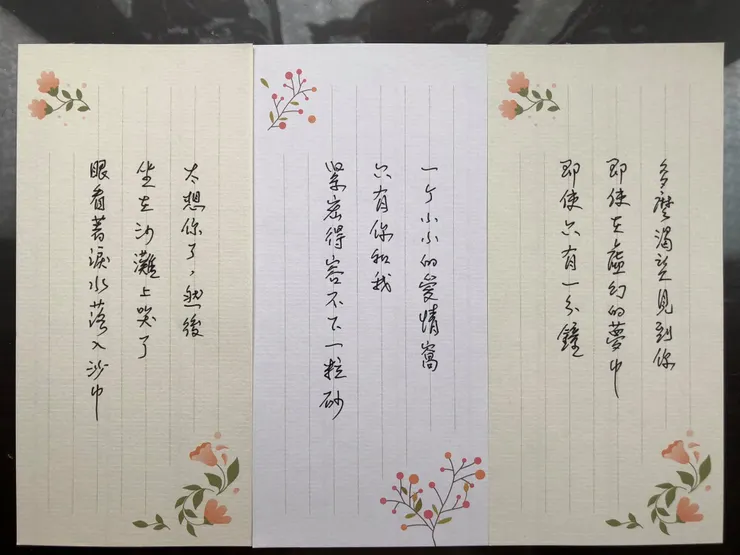 多麼渴望見到你
即使在虛幻的夢中
即使只有一分鐘
一个小小的愛情窩
只有你和我
緊密得容不下一粒砂
太想你了，然後
坐在沙灘上哭了
眼看著淚水落入沙中